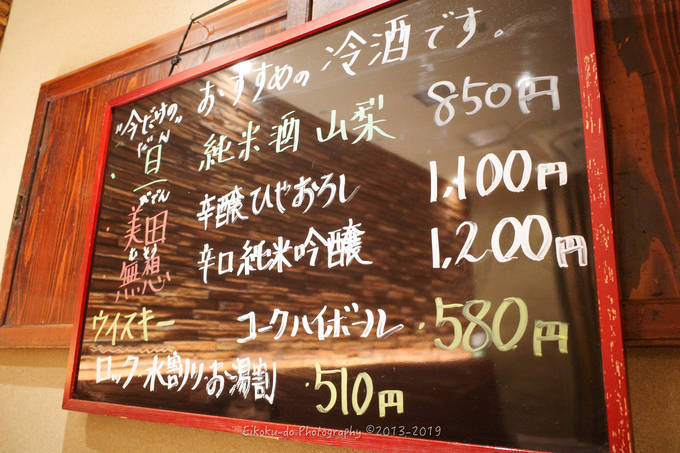 おすすめの 冷酒です。
"今だけの"
だん
旦 純米酒 山梨 850円
美田 辛醸ひやおろし 1,100円
無想 辛口純米吟醸 1,200円
ウイスキー コークハイボール・580円
ロック・水割り・お湯割・510円
Eikoku-do Photography ©2013-2019